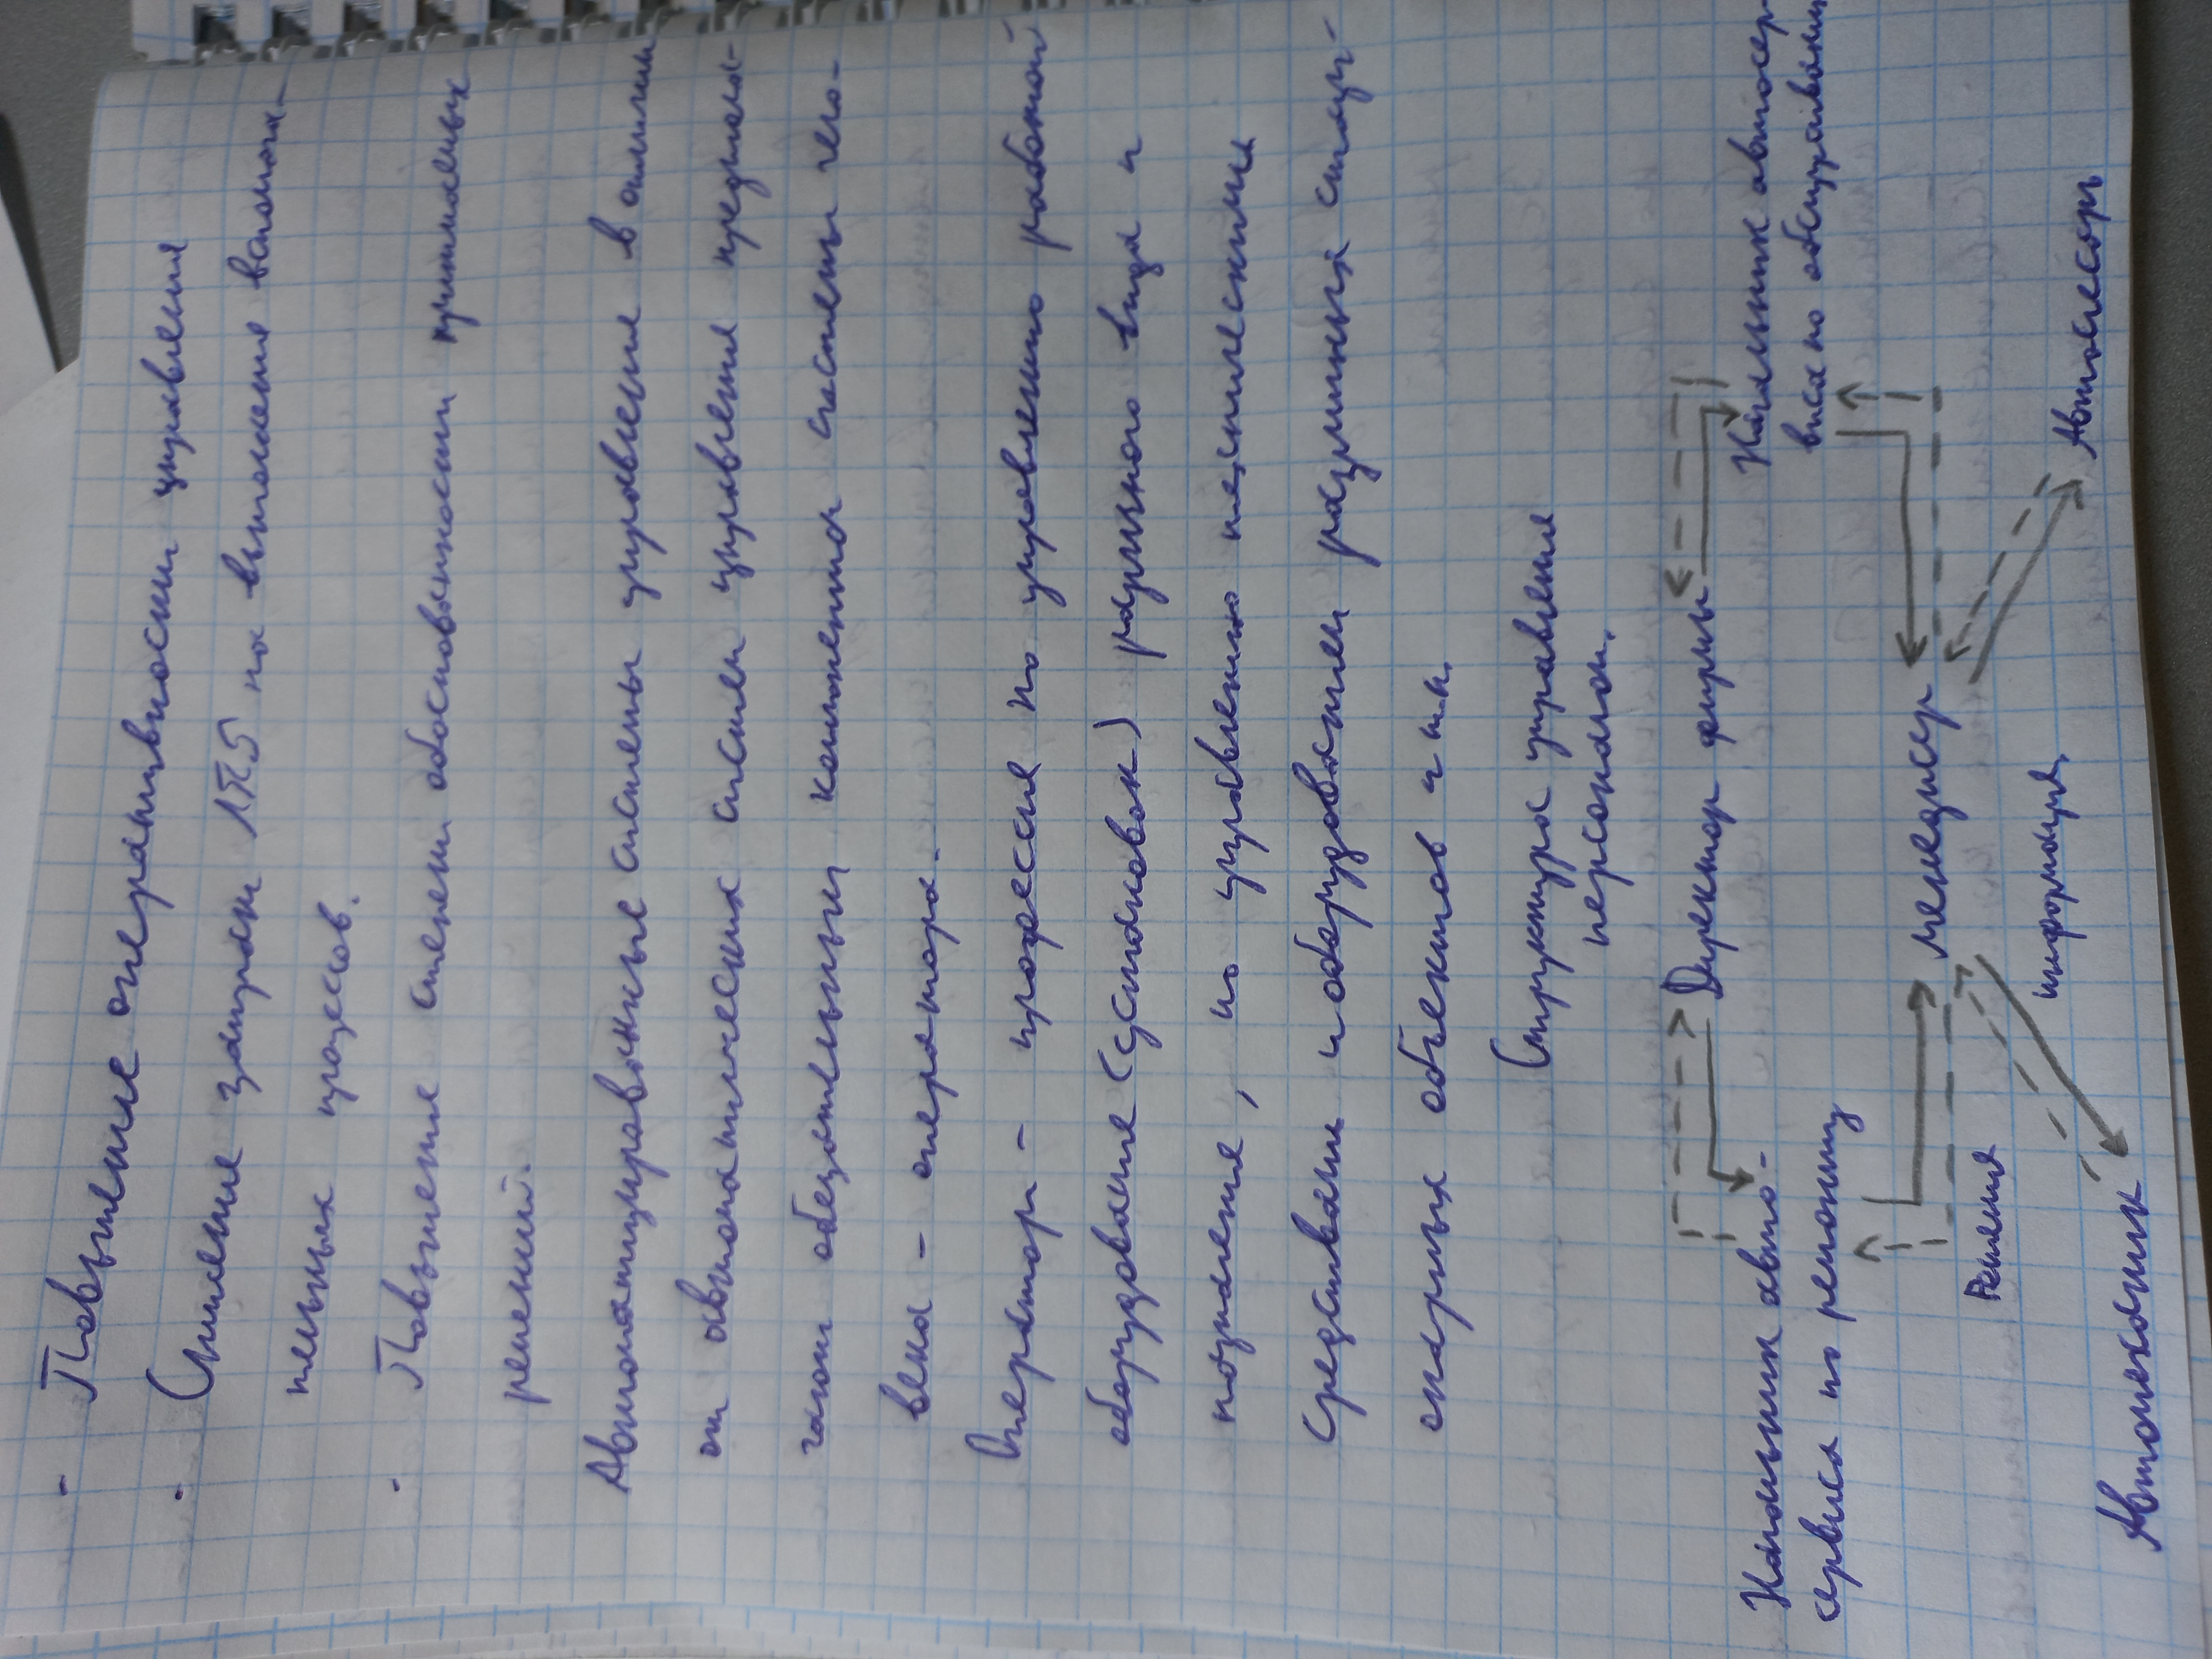 - Повышение оперативности управления
· Снижение затрат ЛПЗ на выполнение вспомога-
тельных процессов.
· Повышение степени обоснованности принимаемых
решений.
Автоматизированные системы управления в отличии
от автоматических систем управления предпола-
гают обязательным компонентом системы чело-
века - оператора.
Оператор - профессия по управлению работой
оборудование (установок) различного вида и
назначение, по управлению техническими
средствами и оборудованием различных стаци-
онарных объектов и т.п.
Структура управления
персоналом.
Директор фирмы
Начальник авто-
сервиса по ремонту
Начальник автосер-
виса по обслуживанию
менеджер
Решения
информация
Автомеханик
Автослесарь